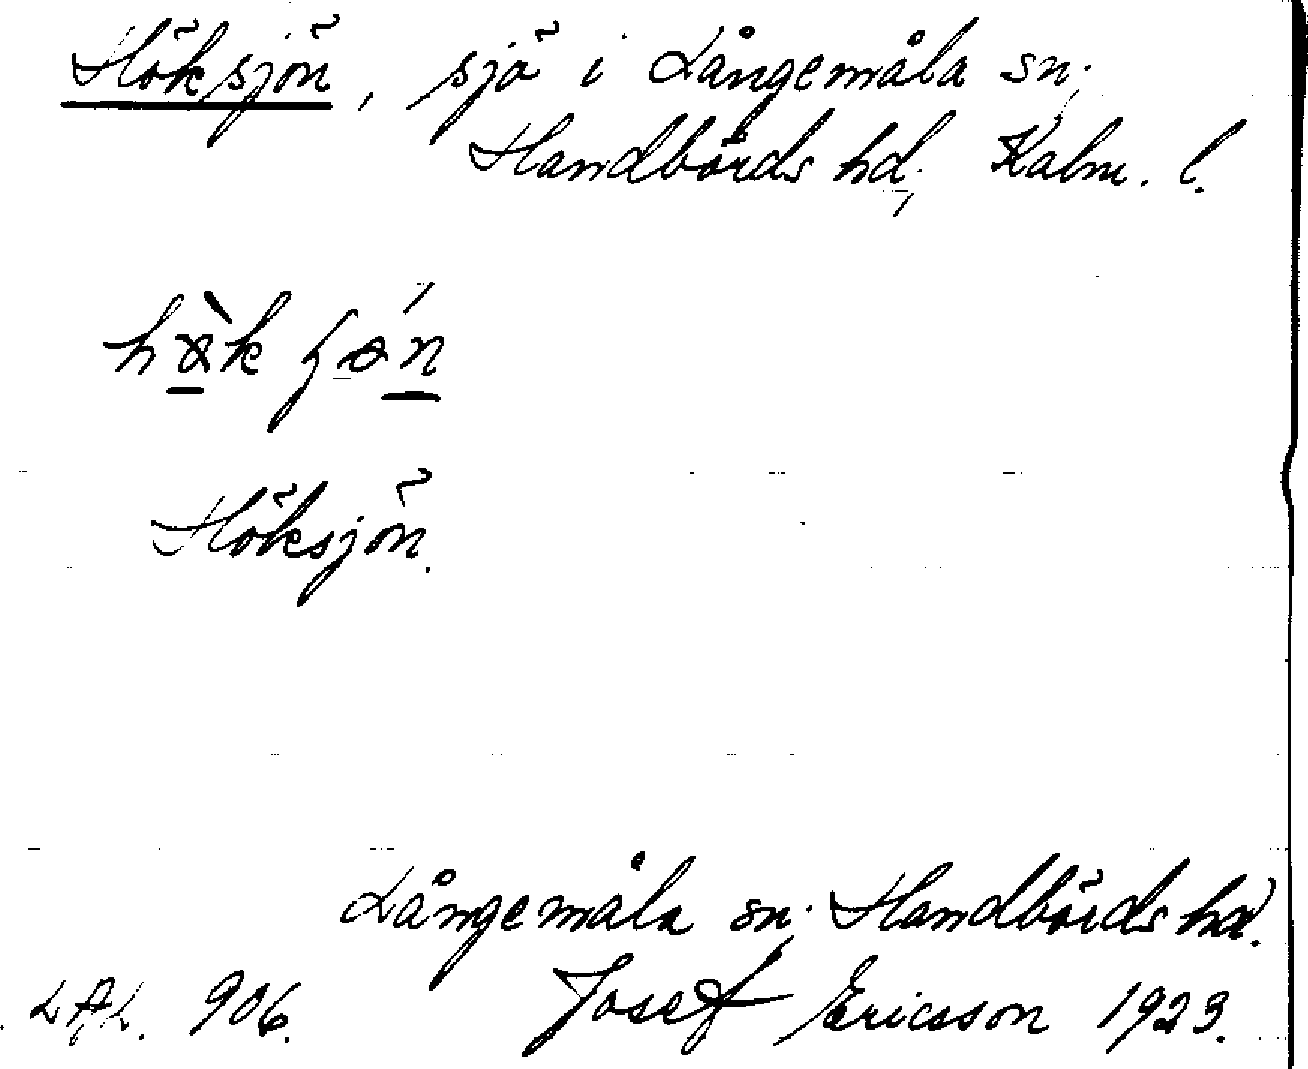 Höksjön, sjö i Långemåla sn;
Handbörds hd; Kalm. l.
Höksjön.
Långemåla sn; Handbörds hd.
L.A.L. 906. Josef Ericsson 1923.